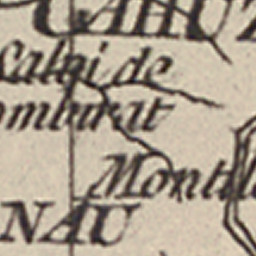 CAHUZ
Calai de
omburat
Montil
NAU